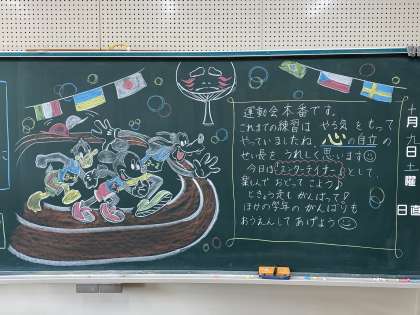 運動会本番です。
これまでの練習は やる気 をもって
やっていましたね。心の自立の
せい長を うれしく思います
今日は「エンターテイナー」として、
楽しんで おどってこよう♪
ときょう走も がんばって!
ほかの学年の がんばりも
おうえんしてあげよう
月
九日
土曜
日直